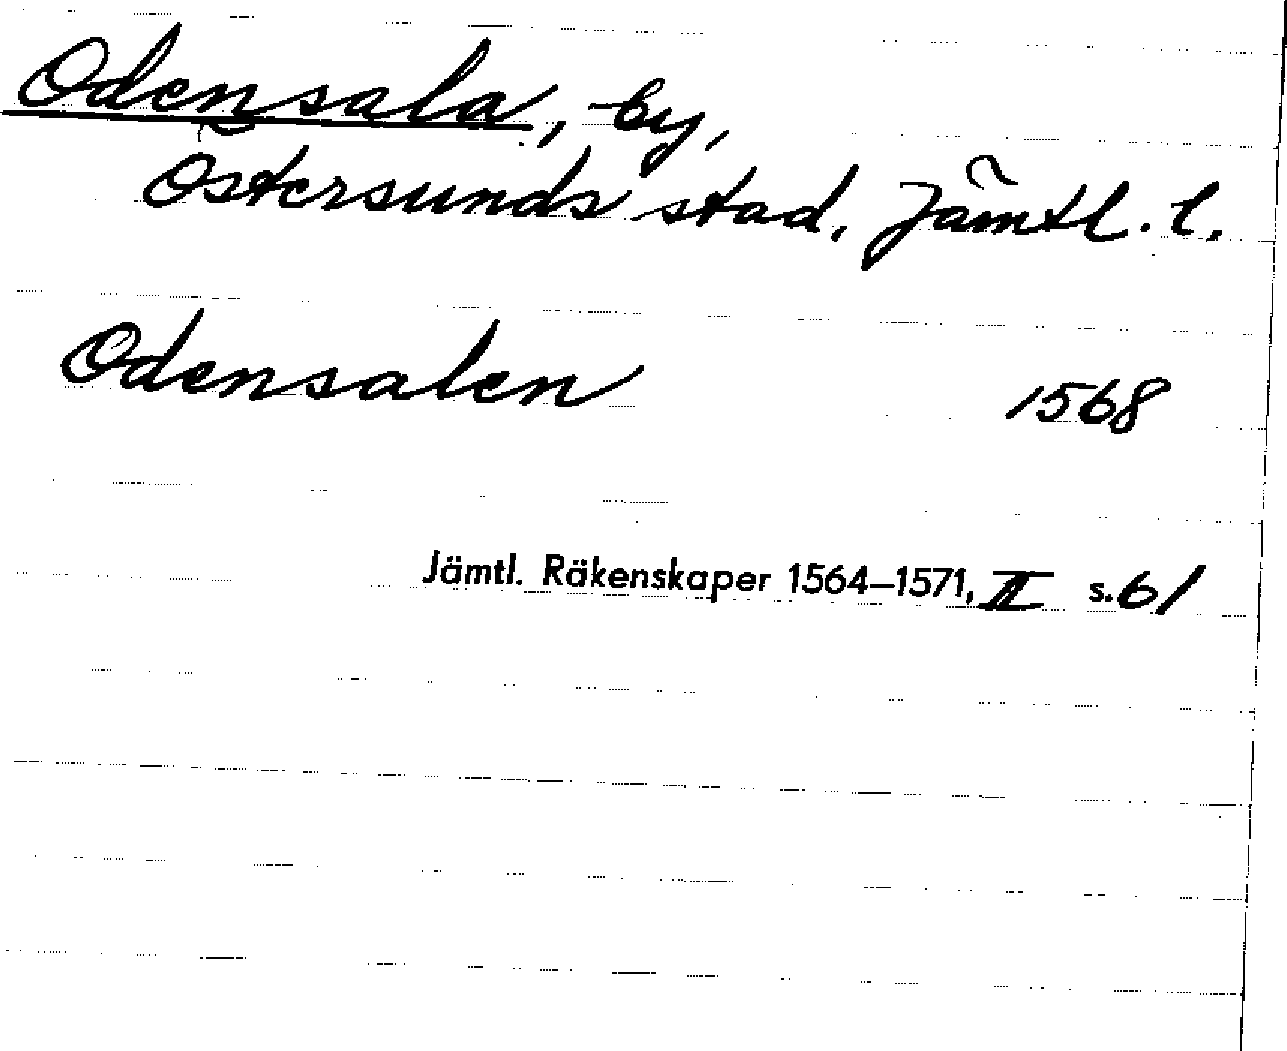 Odensala, by,
Östersunds stad, Jämtl. l.
Odensalen 1568
Jämtl. Räkenskaper 1564–1571, II s. 61